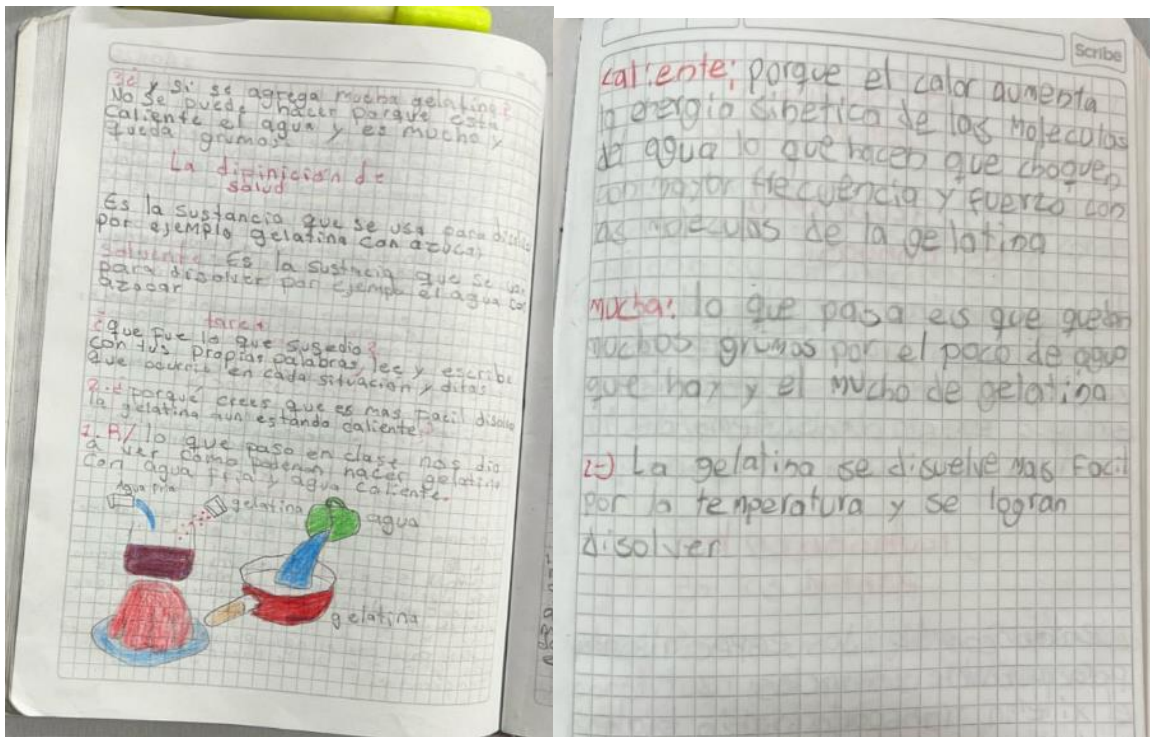 3¿ y si se agrega mucha gelatina?
No se puede hacer porque esta
caliente el agua y es mucho y
queda grumos.
La dipinicion de
salud
Es la sustancia que se usa para
por ejemplo gelatina con azucar
solvente: Es la sustncia que se
para disolver por ejemplo el agua con
azocar
tarea
¿que fue lo que susedio?
con tus propias palabras, lee y escribe
que ocurrio en cada situación y ditas
2.¿porqué crees que es mas facil
la gelatina aun estando caliente?
1. R/ lo que paso en clase nos dio
a ver como podemon hacer gelatina
con agua fria y agua caliente.
Agua fria
gelatina
agua
gelatina
Scribe
caliente; porque el calor aumenta
la energia sinetica de las moleculas
de agua lo que hacen que choquen
con mayor frecuencia y fuerza con
las moleculas de la gelatina
mucha: lo que pasa es que quedan
muchos grumos por el poco de agua
que hay y el mucho de gelatina
2-) La gelatina se disuelve mas facil
por la temperatura y se logran
disolver